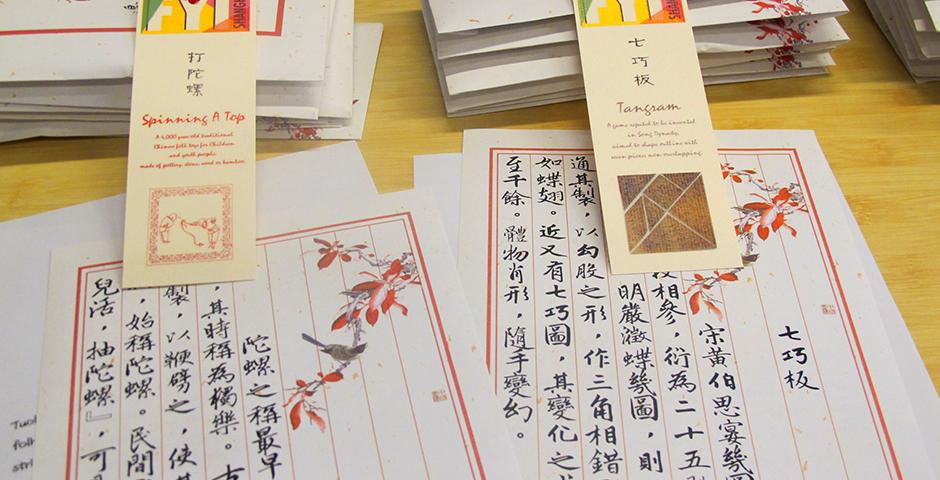 SHANG
打陀螺
Spinning A Top
A 4,000 year old traditional
Chinese folk toys for Children
and youth people
made of pottery, stone, wood or bamboo.
陀螺之稱最早
，其時稱為獨樂。古
製，以鞭劈之，使其
，始稱陀螺。民間
兒活，抽陀螺』，可
folk
stri
七巧板
Tangram
A game reputed to be invented
in Song Dynasty,
aimed to shape outline with
seven pieces non-overlapping.
七巧板
宋黃伯思宴幾圖
相參，衍為二十五別
明嚴澂蝶幾圖，則
通其製，以勾股之形，作三角相錯
如蝶翅。近又有七巧圖，其變化之
至千餘。體物肖形，隨手變幻。